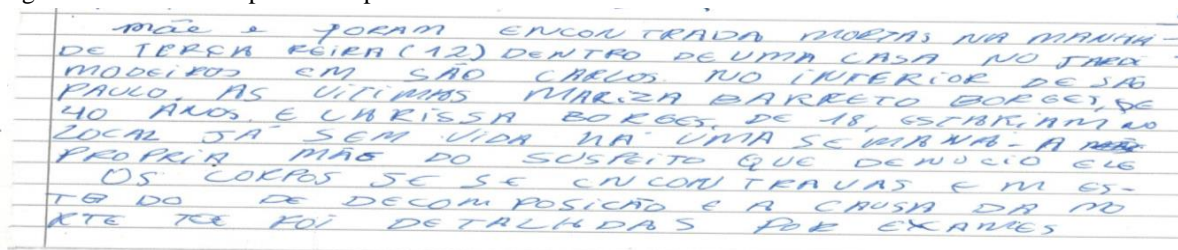 mãe e FORAM ENCONTRADA MORTAS NA MANHÃ-
DE TERÇA FEIRA (12) DENTRO DE UMA CASA NO JARDI
MODEIROS EM SÃO CARLOS NO INTERIOR DE SÃO
PAULO. AS VITIMAS MARIZA BARRETO BORGES, DE
40 ANOS. E LARISSA BORGES, DE 18, ESTARIAM NO
LOCAL JÁ SEM VIDA HÁ UMA SEMANA - A
PROPRIA MÃE DO SUSPEITO QUE DENUCIO ELE
OS CORPOS SE SE ENCONTRAVAS EM ES-
TADO DE DECOMPOSICÃO E A CAUSA DA MO
RTE FOI DETALHADAS POR EXAMES